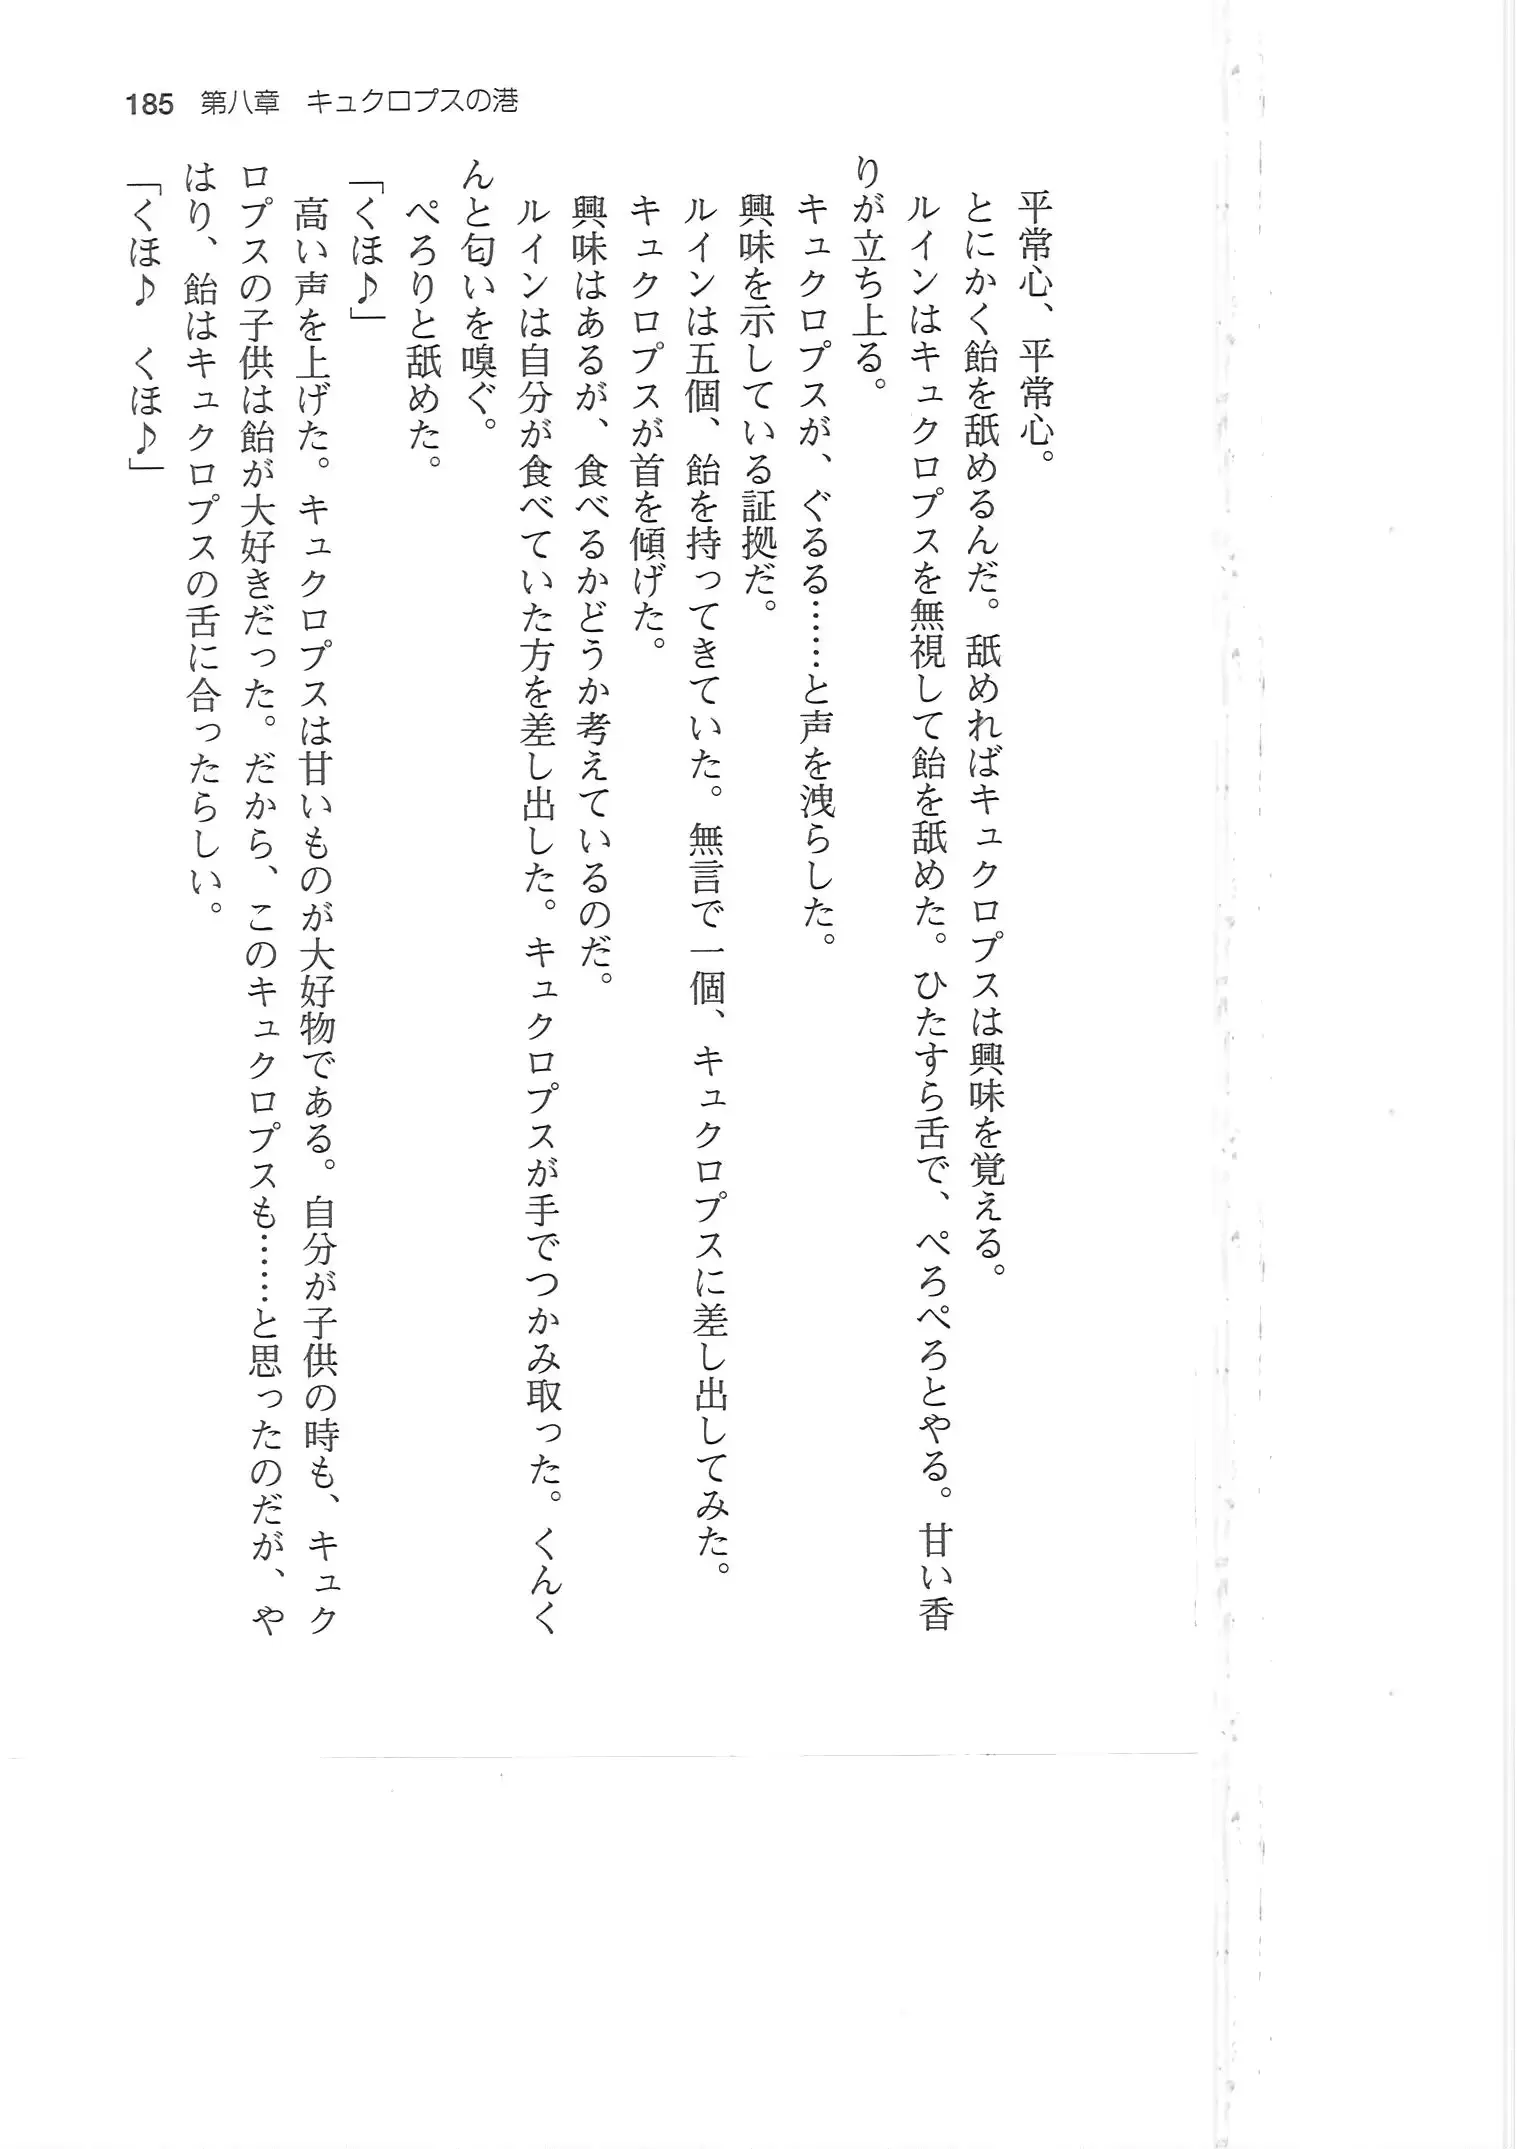 185 第八章 キュクロプスの港
　平常心、平常心。
　とにかく飴を舐めるんだ。舐めればキュクロプスは興味を覚える。
　ルインはキュクロプスを無視して飴を舐めた。ひたすら舌で、ぺろぺろとやる。甘い香
りが立ち上る。
　キュクロプスが、ぐるる……と声を洩らした。
　興味を示している証拠だ。
　ルインは五個、飴を持ってきていた。無言で一個、キュクロプスに差し出してみた。
　キュクロプスが首を傾げた。
　興味はあるが、食べるかどうか考えているのだ。
　ルインは自分が食べていた方を差し出した。キュクロプスが手でつかみ取った。くんく
んと匂いを嗅ぐ。
　ぺろりと舐めた。
「くほ♪」
　高い声を上げた。キュクロプスは甘いものが大好物である。自分が子供の時も、キュク
ロプスの子供は飴が大好きだった。だから、このキュクロプスも……と思ったのだが、や
はり、飴はキュクロプスの舌に合ったらしい。
「くほ♪　くほ♪」